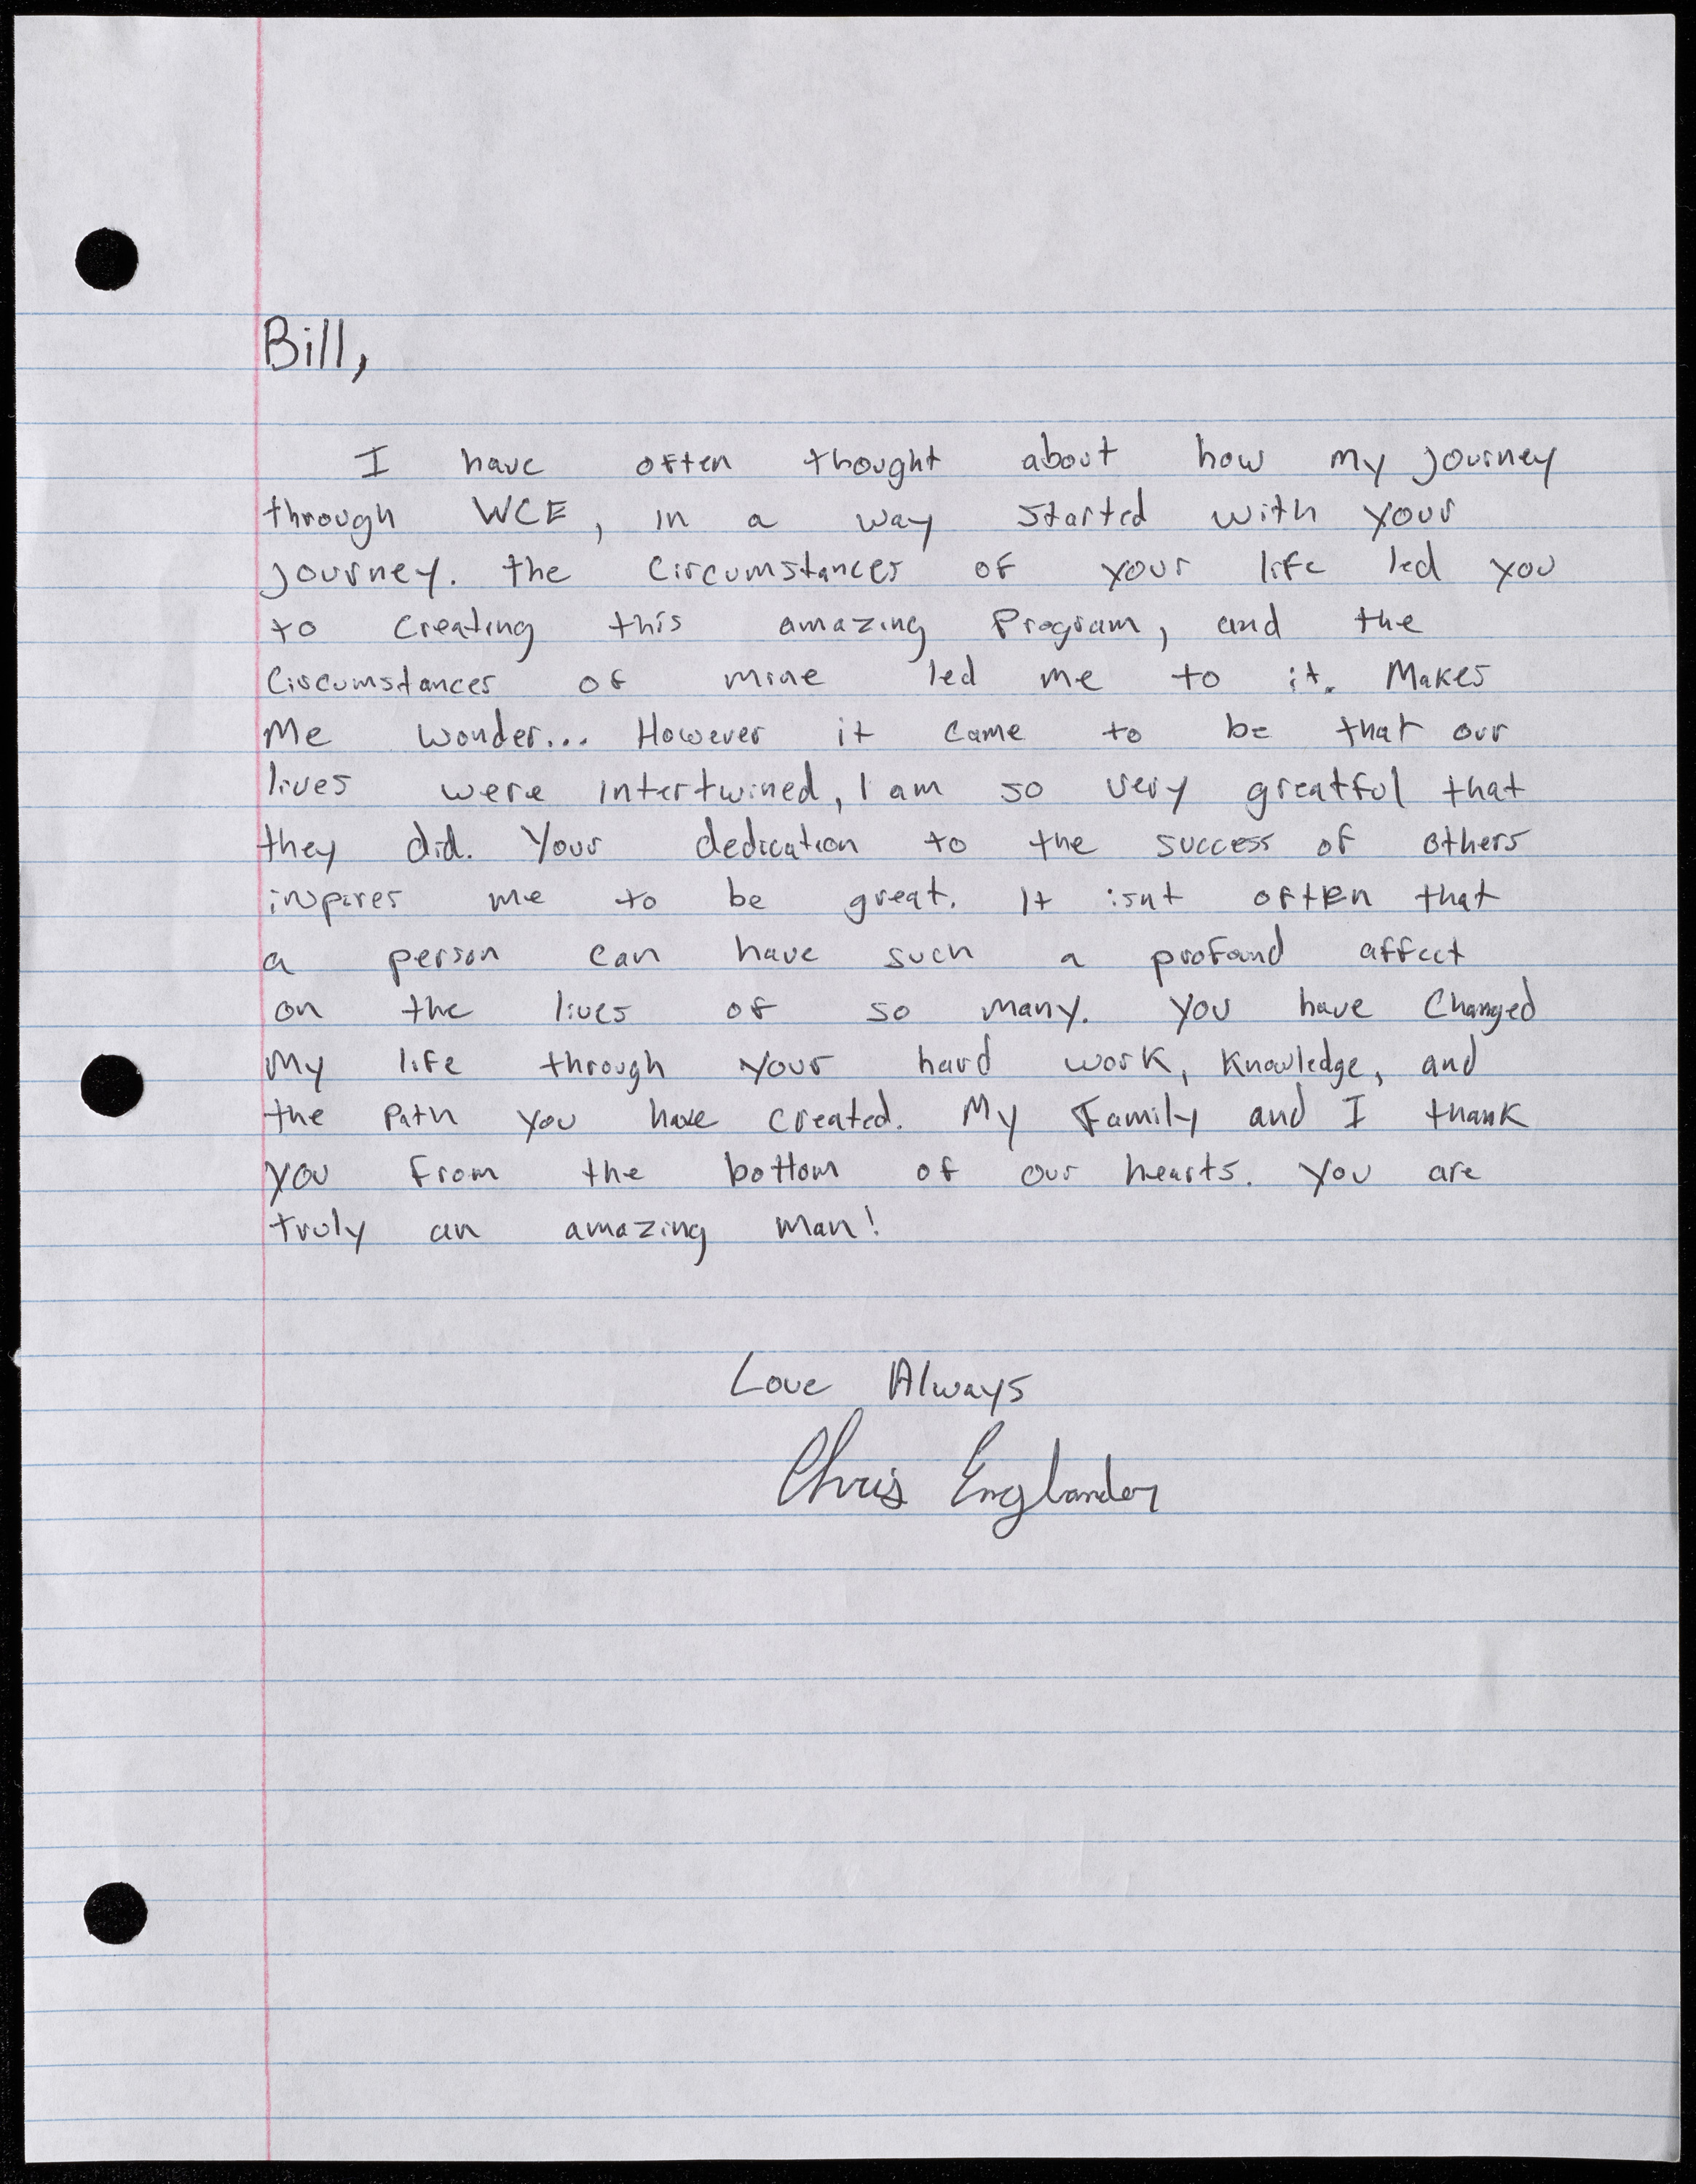 Bill,
I have often thought about how my journey
through WCE, in a way started with your
journey. the circumstances of your life led you
to creating this amazing Program, and the
circumstances of mine led me to it. Makes
Me wonder... However it came to be that our
lives were intertwined, I am so very greatful that
they did. Your dedication to the success of others
inspires me to be great. It isnt often that
a person can have such a profound affect
on the lives of so many. You have Changed
My life through your hard work, Knowledge, and
the Path you have created. My Family and I thank
you from the bottom of our hearts. You are
truly an amazing man!
Love Always
Chris Englander